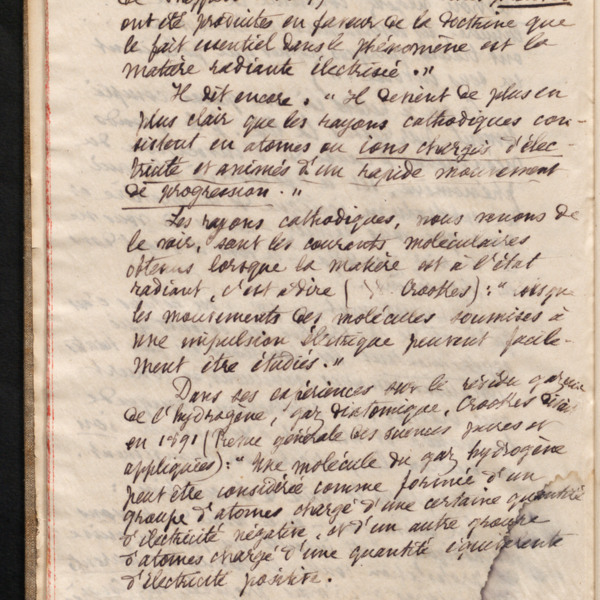 ont été produites en faveur de la doctrine que
le fait essentiel dans le phénomène est la
matière radiante électrisée."
Il dit encore. "Il devient de plus en
plus clair que les rayons cathodiques con-
sistent en atomes ou ions chargés d'élec-
tricité et animés d'un rapide mouvement
de progression."
Les rayons cathodiques, nous venons de
le voir, sont les courants moléculaires
obtenus lorsque la matière est à l'état
radiant, c'est à dire ( Crookes): " lorsque
les mouvements des molécules soumises à
une impulsion électrique peuvent facile-
ment être étudiés."
Dans ses expériences sur le résidu gazeux
de l'hydrogène, gaz diatomique, Crookes disait
en 1891 (Revue générale des sciences pures et
appliquées): "Une molécule du gaz hydrogène
peut être considérée comme formée d'un
groupe d'atomes chargé d'une certaine quantité
d'électricité négative, et d'un autre groupe
d'atomes chargé d'une quantité équivalente
d'électricité positive.